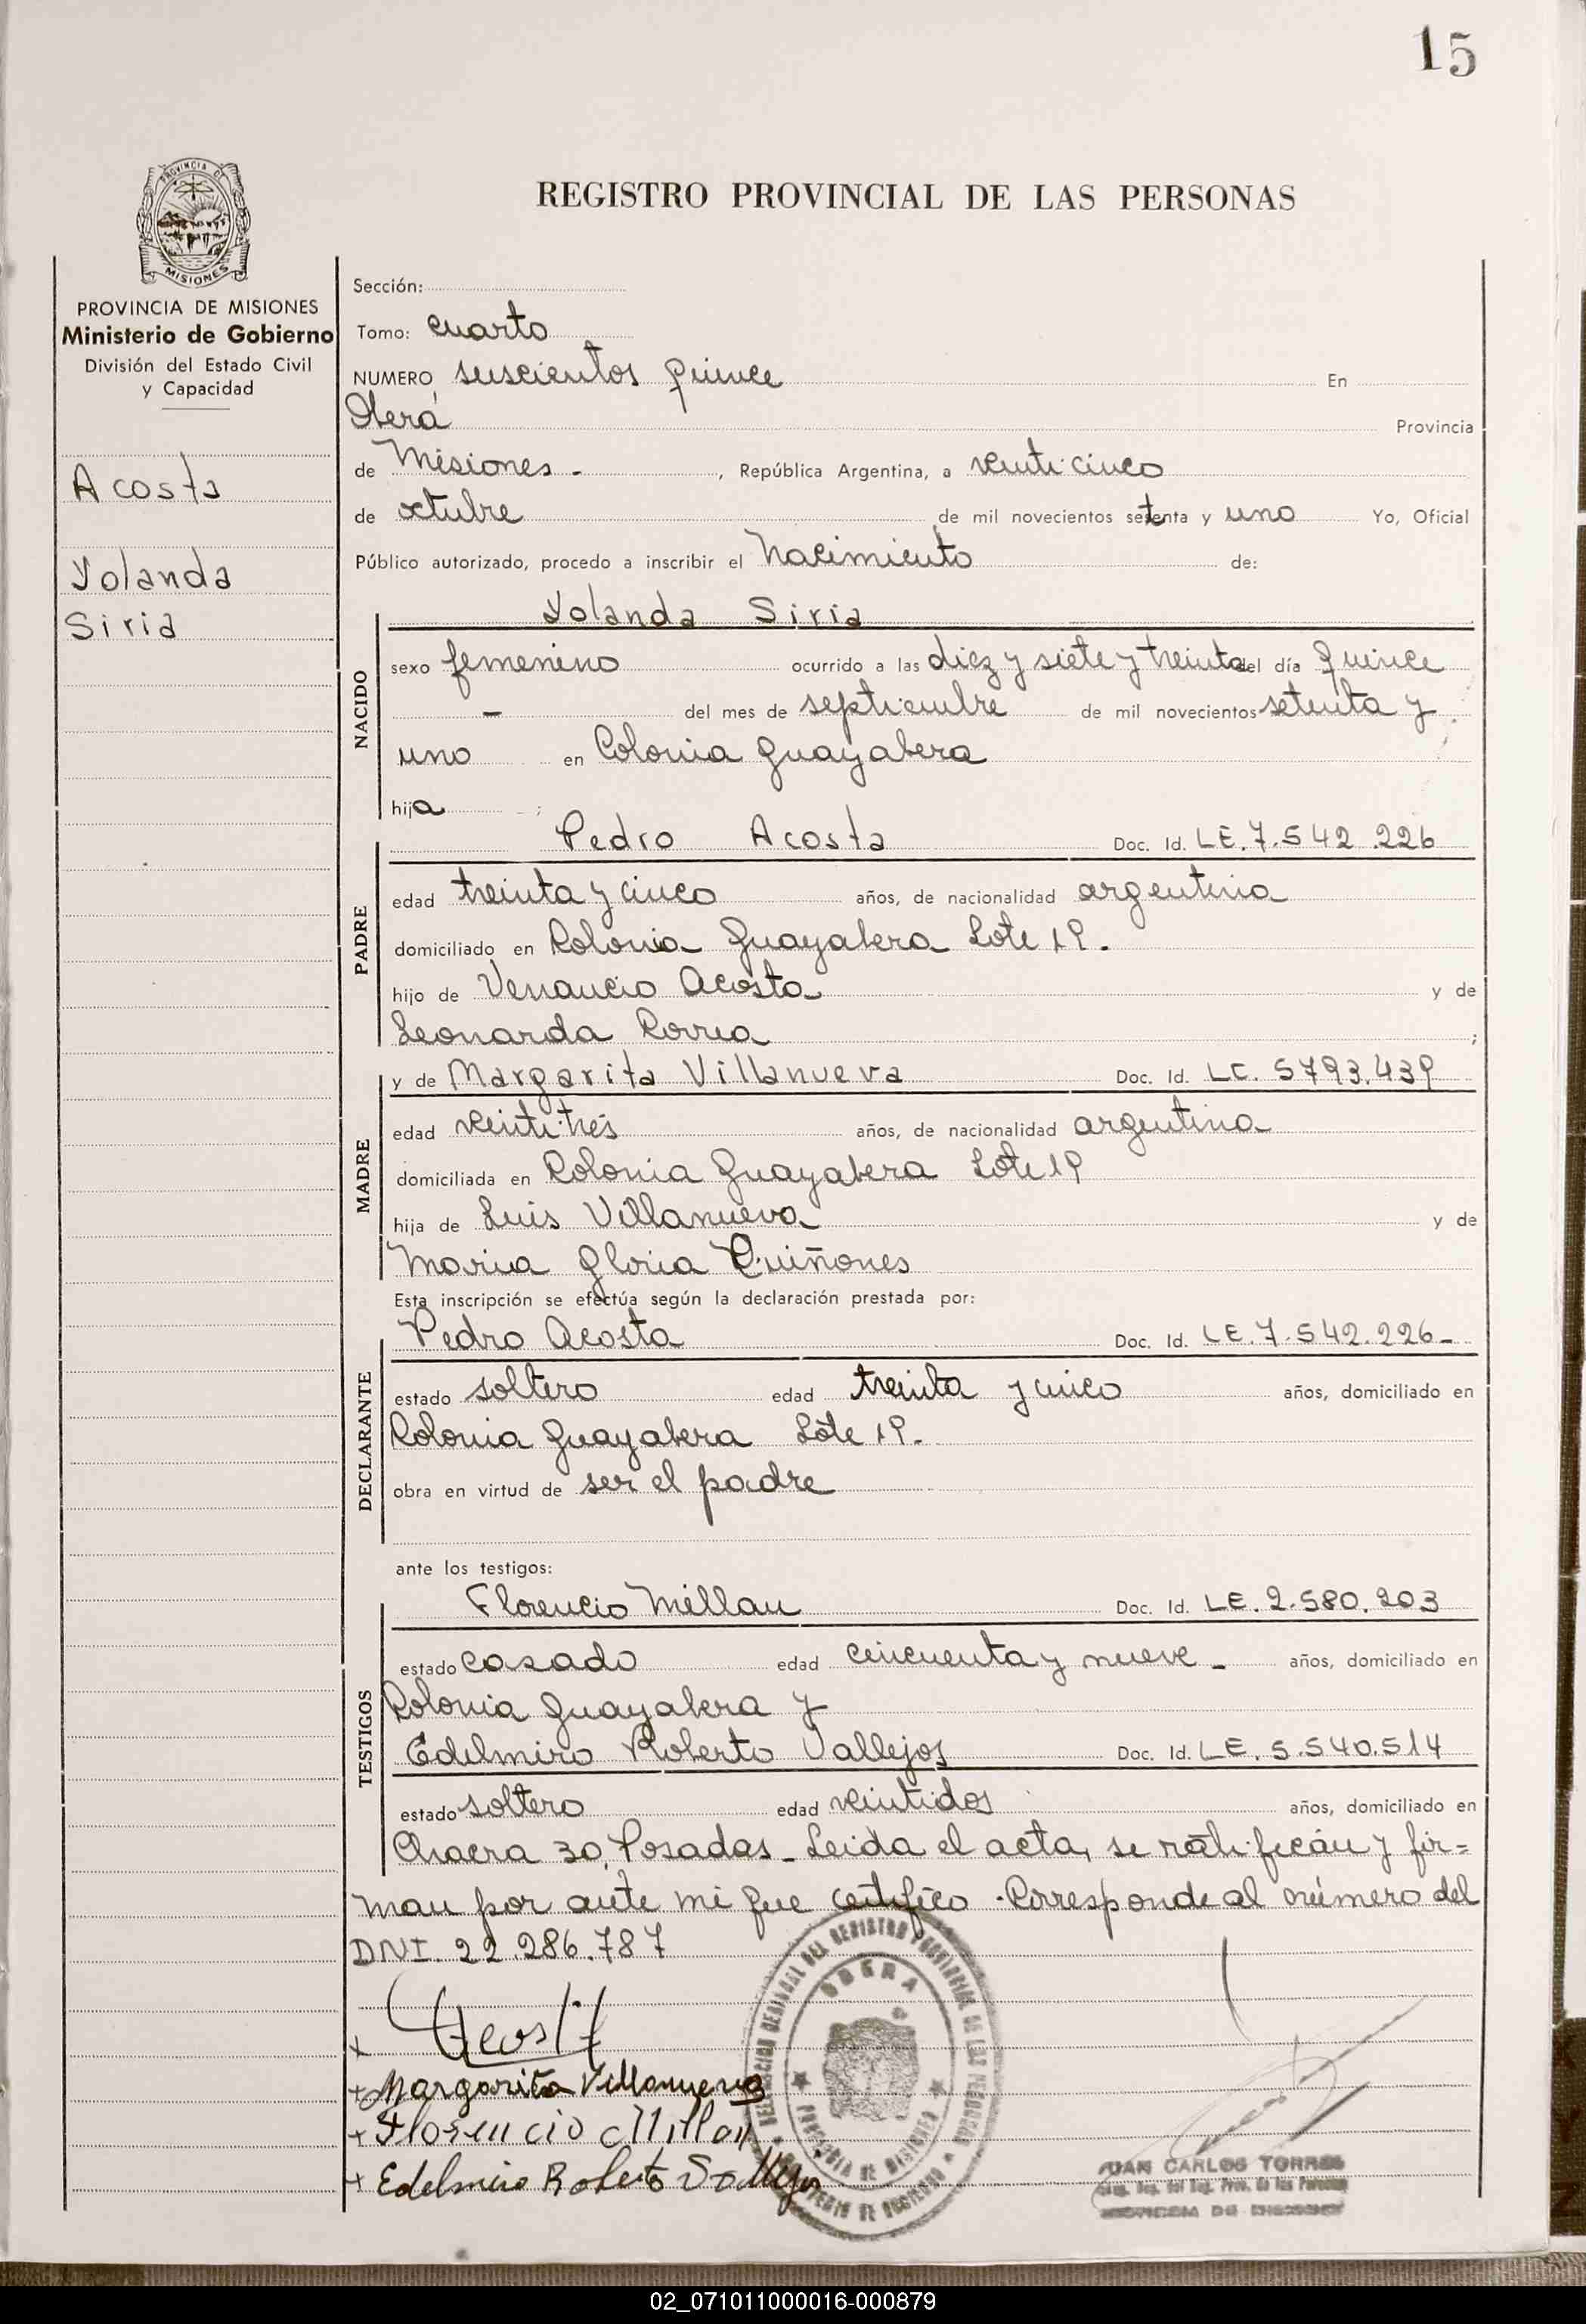 15
PROVINCIA DE
MISIONES
REGISTRO PROVINCIAL DE LAS PERSONAS
PROVINCIA DE MISIONES
Ministerio de Gobierno
División del Estado Civil
y Capacidad
Acosta
Yolanda
Siria
Sección:
Tomo: cuarto
NUMERO seiscientos quince En
Oberá Provincia
de Misiones - , República Argentina, a veinticinco
de octubre de mil novecientos setenta y uno Yo, Oficial
Público autorizado, procedo a inscribir el Nacimiento de:
Yolanda Siria
NACIDO
sexo femenino ocurrido a las diez y siete y treinta del día quince
- del mes de septiembre de mil novecientos setenta y
uno en Colonia Guayabera
hija ;
PADRE
Pedro Acosta Doc. Id. LE. 7.542.226
edad treinta y cinco años, de nacionalidad argentina
domiciliado en Colonia Guayabera Lote 19.
hijo de Venancio Acosta y de
Leonarda Correa ;
MADRE
y de Margarita Villanueva Doc. Id. LC. 5793.439
edad veintitrés años, de nacionalidad argentina
domiciliada en Colonia Guayabera Lote 19
hija de Luis Villanueva y de
Maria Gloria Quiñones
Esta inscripción se efectúa según la declaración prestada por:
DECLARANTE
Pedro Acosta Doc. Id. LE. 7.542.226-
estado soltero edad treinta y cinco años, domiciliado en
Colonia Guayabera Lote 19.
obra en virtud de ser el padre
ante los testigos:
TESTIGOS
Florencio Millan Doc. Id. LE. 2.580.203
estado casado edad cincuenta y nueve - años, domiciliado en
Colonia Guayabera y
Edelmiro Roberto Vallejos Doc. Id. LE. 5.540.514
estado soltero edad veintidos años, domiciliado en
Chacra 30, Posadas - Leida el acta, se ratifican y fir=
man por ante mi que certifico. Corresponde al número del
DNI. 22.286.787
x Acosta
+ Margarita Villanueva
+ Florencio Millan
+ Edelmiro Roberto Vallejos
DELEGACION REGIONAL DEL REGISTRO PROVINCIAL DE LAS PERSONAS
OBERA
PROVINCIA DE MISIONES
MINISTERIO DE GOBIERNO
JUAN CARLOS TORRES
Reg. Prov. de las Personas
02_071011000016-000879